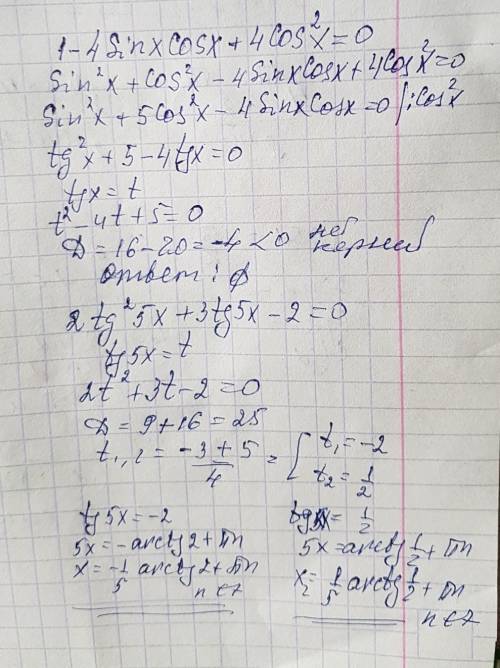 1 - 4 Sinx Cosx + 4 Cos²x = 0
Sin²x + Cos²x - 4 Sinx Cosx + 4 Cos²x = 0
Sin²x + 5 Cos²x - 4 Sinx Cosx = 0 | : Cos²x
tg²x + 5 - 4 tgx = 0
tgx = t
t² - 4t + 5 = 0
D = 16 - 20 = -4 < 0 нет корней
Ответ: ∅
2 tg²5x + 3 tg5x - 2 = 0
tg5x = t
2t² + 3t - 2 = 0
D = 9 + 16 = 25
t₁,₂ = (-3 ± 5)/4 = [ t₁ = -2
t₂ = 1/2
tg5x = -2
5x = -arctg2 + πn
x = -1/5 arctg2 + πn
n ∈ Z
tg5x = 1/2
5x = arctg 1/2 + πn
x₂ = 1/5 arctg 1/2 + πn
n ∈ Z